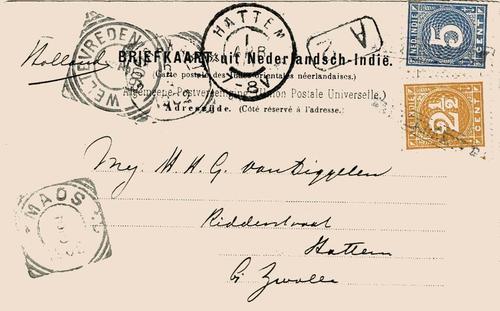 HATTEM
WELTEVREDEN
A
Holland
BRIEFKAART uit Nederlandsch-Indië.
(Carte postale des Indes orientales néerlandaises.)
Algemeene Postvereeniging (Union Postale Universelle.)
Adreszijde. (Côté réservé à l'adresse.)
NED. INDIE
5
CENT
NED. INDIE
2½
CENT
MAOS
Mej. H. H. G. van Diggelen
Ridderstraat
Hattem
bij Zwolle